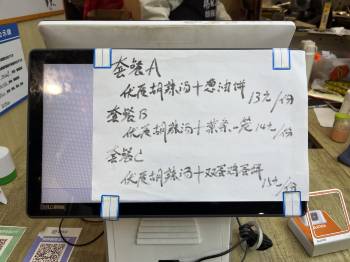 套餐A
优质胡辣汤+葱油饼 13元/份
套餐B
优质胡辣汤+蒸菜一笼 14元/份
套餐C
优质胡辣汤+双蛋鸡蛋饼 15元/份